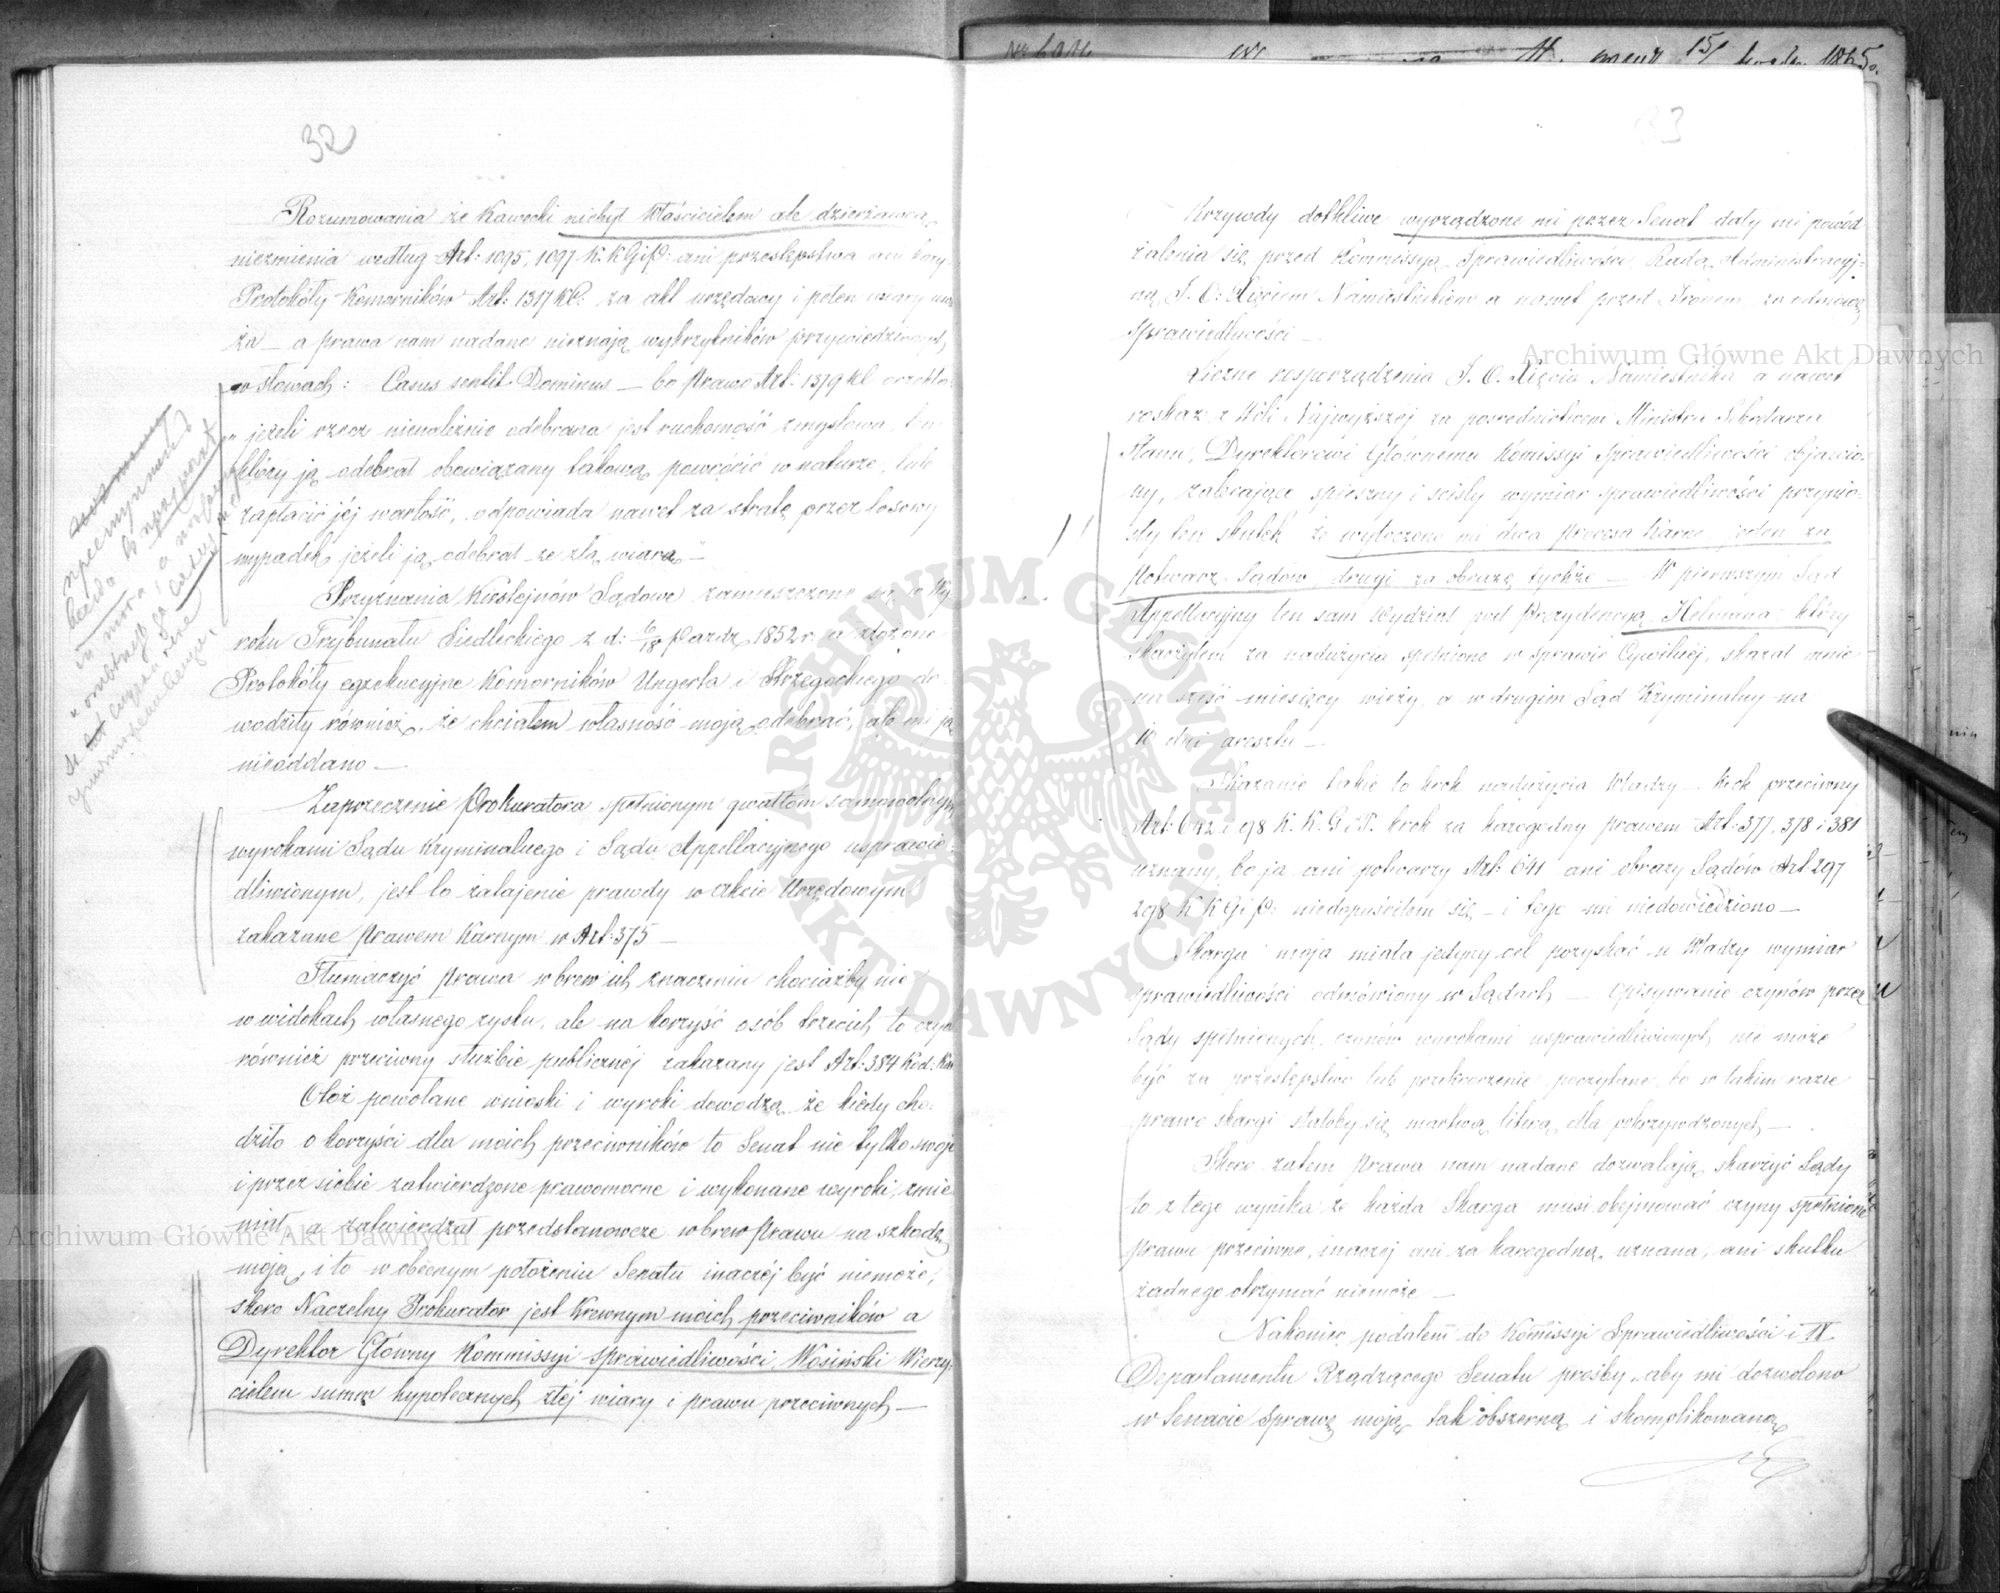 32
Rozumowania że Kawecki niebył Właścicielem ale dzierżawcą
niezmienia według Art: 1095, 1097 K. K G i P: ani przestępstwa ani kary
Protokóły Komorników Art: 1317 KC: za akt urzędowy i pełen wiary uwa
ża — a prawa nam nadane nieznają wykrzykników przywiedzionych
w słowach: Casus sentit Dominus — bo Prawo Art: 1379 KC orzekło
„jeżeli rzecz nienależnie odebrana jest ruchomość zmysłowa, ten
który ją odebrał obowiązany takową powrócić w naturze, lub
zapłacić jéj wartość, odpowiada nawet za stratę przez losowy
wypadek, jeżeli ją odebrał ze złą wiarą" —
Przyznania Sądowe zamieszczone się w Wy
roku Trybunału Siedleckiego z d: 6/18 Paźdz 1852 r. a złożone
Protokóły egzekucyjne Komorników Ungerta i Strzegockiego do
wodziły również, że chciałem własność moją odebrać, ale mi ją
nieoddano —
Zaprzeczenie Prokuratora spełnionym gwałtom samowolnym
wyrokami Sądu Kryminalnego i Sądu Appellacyjnego usprawie
dliwionym, jest to zatajenie prawdy w akcie Urzędowym
zakazane Prawem Karnym w Art: 375 —
Tłumaczyć Prawa wbrew ich znaczeniu chociażby nie
w widokach własnego zysku, ale na korzyść osób trzecich, to czyn
również przeciwny służbie publicznéj zakazany jest Art: 384 Kod: Kar
Otóż powołane wnioski i wyroki dowodzą że kiedy cho:
dziło o korzyści dla moich przeciwników to Senat nie tylko swoje
i przez siebie zatwierdzone prawomocne i wykonane wyroki, zmie
niał, a zatwierdzał przedstanowcze wbrew Prawu na szkodę
moją, i to w obecnym położeniu Senatu inaczéj być niemoże,
skoro Naczelny Prokurator jest Krewnym moich przeciwników a
Dyrektor Główny Kommissyi Sprawiedliwości Wosiński Wierzy
cielem summ hypotecznych złéj wiary i prawu przeciwnych —
33
Krzywdy dotkliwe wyrządzone mi przez Senat dały mi powód
żalenia się przed Kommissyą Sprawiedliwości Radą Administracyj=
ną J. O. Xięciem Namiestnikiem a nawet przed Tronem, za odmowę
sprawiedliwości —
Liczne rosporządzenia J. O. Xięcia Namiestnika a nawet
roskaz z Woli Najwyższéj za pośrednictwem Ministra Sekretarza
Stanu, Dyrektorowi Głównemu Komissyi Sprawiedliwości objawio=
ny, zalecające spieszny i ścisły wymiar sprawiedliwości przynio=
sły ten skutek że wytoczono mi dwa procesa Karne jeden za
Potwarz Sądów, drugi za obrazę tychże — W pierwszym Sąd
Appellacyjny ten sam Wydział pod Prezydencyą Helmana, który
skarżyłem za nadużycia spełnione w sprawie Cywilnéj, skazał mnie
na sześć miesięcy wieży, a w drugim Sąd Kryminalny na
10 dni aresztu —
Skazanie takie to krok nadużycia Władzy — krok przeciwny
Art: 642 i 98 K. K. G i P. krok za karogodny prawem Art: 377, 378 i 381
uznany, bo ja ani potwarzy Art: 641 ani obrazy Sądów Art 297
298 K K G i P: niedopuściłem się — i tego mi niedowiedziono —
Skarga moja miała jedyny cel pozyskać u Władzy wymiar
sprawiedliwości odmówiony w Sądach — opisywanie czynów przez
Sądy spełnionych, czynów wyrokami usprawiedliwionych, nie może
być za przestępstwo lub przekroczenie poczytane, bo w takim razie
prawo skargi stałoby się martwą literą dla pokrzywdzonych —
Skoro zatem Prawa nam nadane dozwalają skarżyć Sądy
to z tego wynika że każda Skarga musi obejmować czyny spełnione
prawu przeciwne, inaczej ani za karogodną uznana, ani skutku
żadnego otrzymać niemoże —
Nakoniec podałem do Komissyi Sprawiedliwości i IX
Departamentu Rządzącego Senatu prośby „aby mi dozwolono
w Senacie Sprawę moją tak obszerną i skomplikowaną
Archiwum Główne Akt Dawnych
Archiwum Główne Akt Dawnych
ARCHIWUM GŁÓWNE AKT DAWNYCH